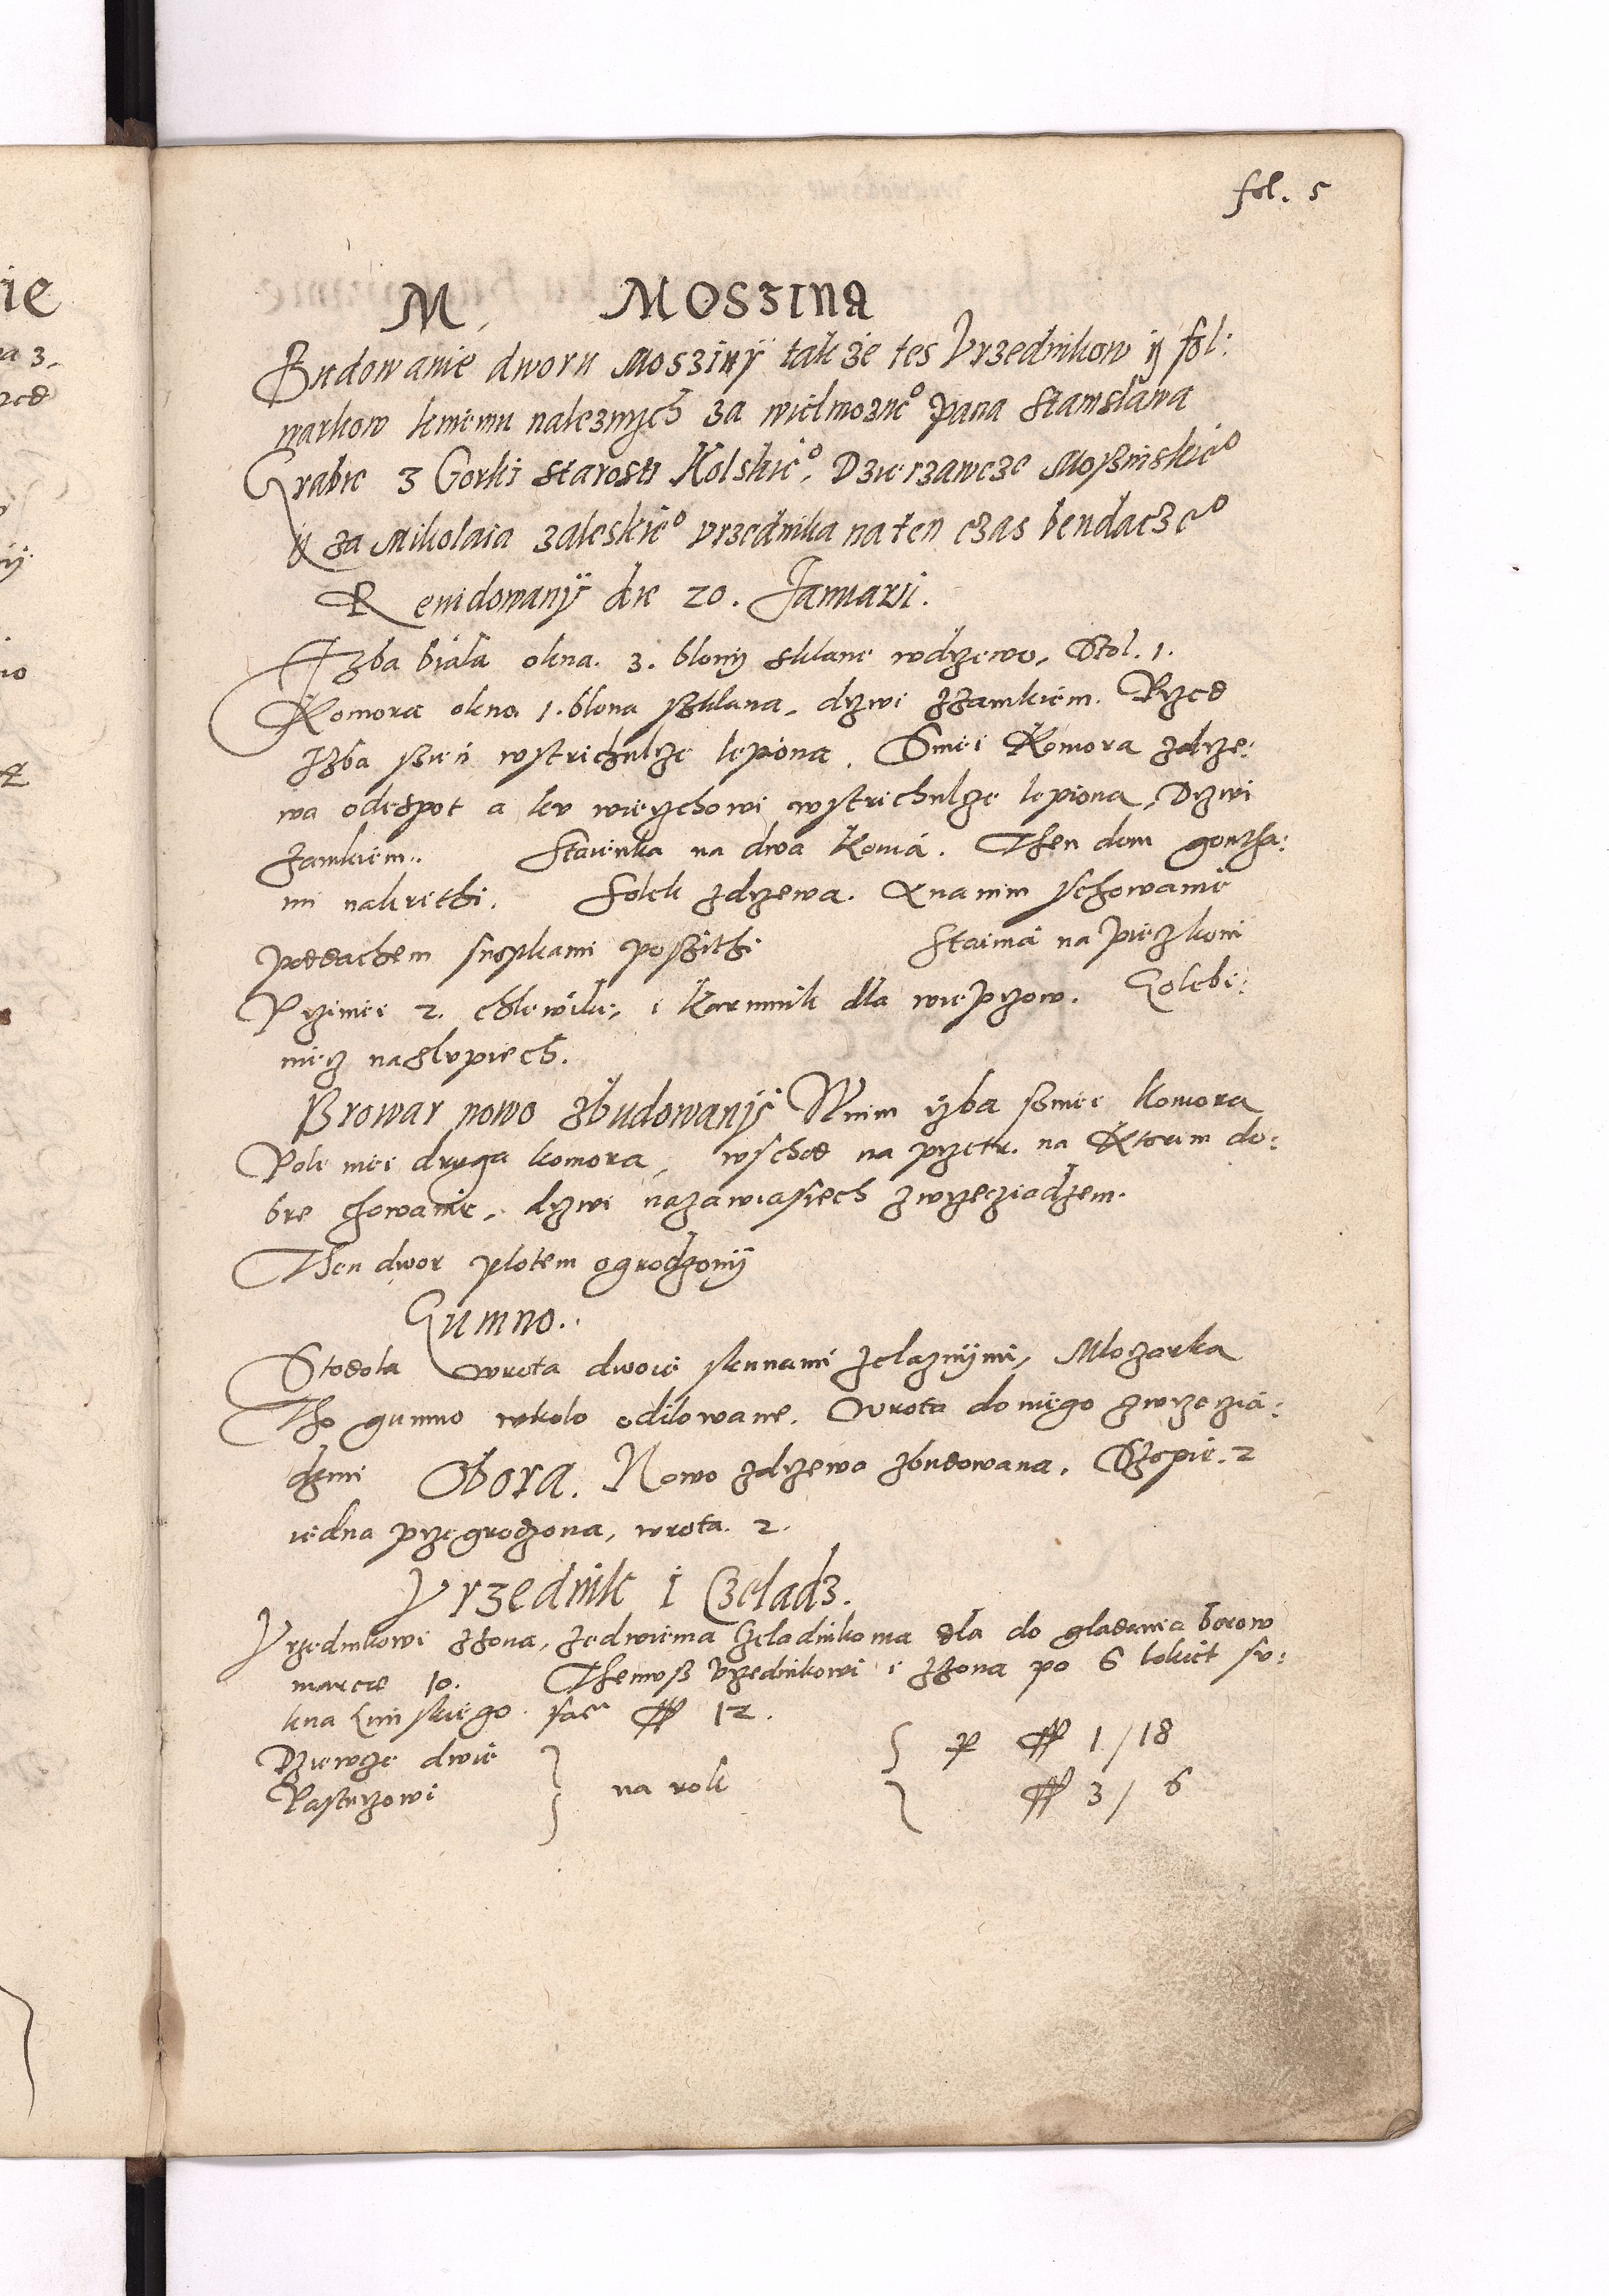 fol. 5
M. MOSZINA
Budowanie dworu Mosziny tak ze tes Vrzednikow y fol:
warkow kniemu naleznych za wielmozne° pana Stanislawa
Grabie z Gorki starosti Kolskie°. Dzierzawcze Moszinskie°
y za Mikolaia zaleskie° vrzednika na ten czas bendacze°
Rewidowany die 20. Januarii.
Izba biala okna. 3. blony sklane wdrzewo, Stol. 1.
Komora okno 1. blona szklana, drzwi zzamkiem. Przed
Izba szien wstrichulze lepiona. Smei Komora zdrze:
wa odespot a kv wierzchowi wstrichulze lepiona, Drzwi
zamkiem.. Staienka na dwa konia. Then dom gontha:
mi nakrithi. Solek zdrzewa. Xnanim schowanie
poddachem snopkami poszithi Stainia na pieczkoni
Prziniei 2. chlewiki, i karmnik dla wieprzow. Golebi:
niecz naslvpiech.
Browar nowo zbudowany Wnim izba szniei komora
Pole niei druga komora, wschod na pyetr. na Ktorim do:
bre chowanie, drzwi nazawiasiech zwrzecziadzem.
Then dwor plotem ogrodzony
Gumno..
Stodola wrota dwoie skunami zelaznymi, Mloczarka
Tho gumno wkolo odilowane. Wrota do niego zwrzeczia:
dzmi Obora. Nowo zdrzewa zbudowana. Szopie. 2
iedna przegrodzona, wrota. 2.
Vrzednik i Czeladz.
Vrzednikowi zzona, zedwiema czeladnikoma dla do gladania borow
marcae 10. Themvsz Vrzednikowi i zzona po 6 lokiet sv:
kna Lunskiego fac 12.
Dziewcze dwie na rok p 1 / 18
Pasturzowi 3 / 6